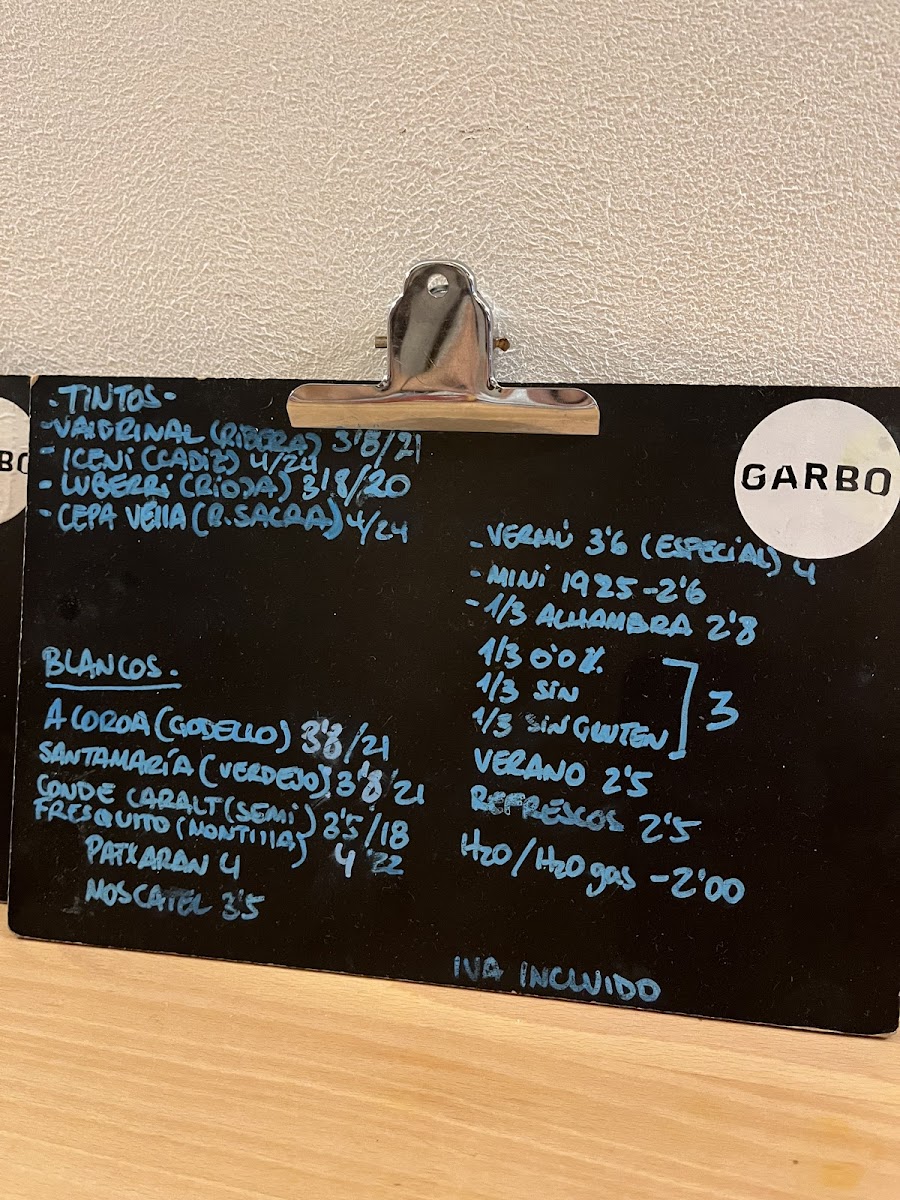 -TINTOS-
-VALDRINAL (RIBERA) 3'8/21
- ICENI (CADIZ) 4/24
- LUBERRI (RIOJA) 3'8/20
- CEPA VELLA (R.SACRA) 4/24
BLANCOS.
A COROA (GODELLO) 3'8/21
SANTAMARÍA (VERDEJO) 3'8/21
CONDE CARALT (SEMI) 3'5/18
FRESQUITO (MONTILLA) 4 22
PATXARAN 4
MOSCATEL 3'5
GARBO
-VERMÚ 3'6 (ESPECIAL) 4
-MINI 1925-2'6
-1/3 ALHAMBRA 2'8
1/3 0'0%
1/3 SIN
1/3 SIN GLUTEN
3
VERANO 2'5
REFRESCOS 2'5
H2O/H2O gas -2'00
IVA INCLUIDO